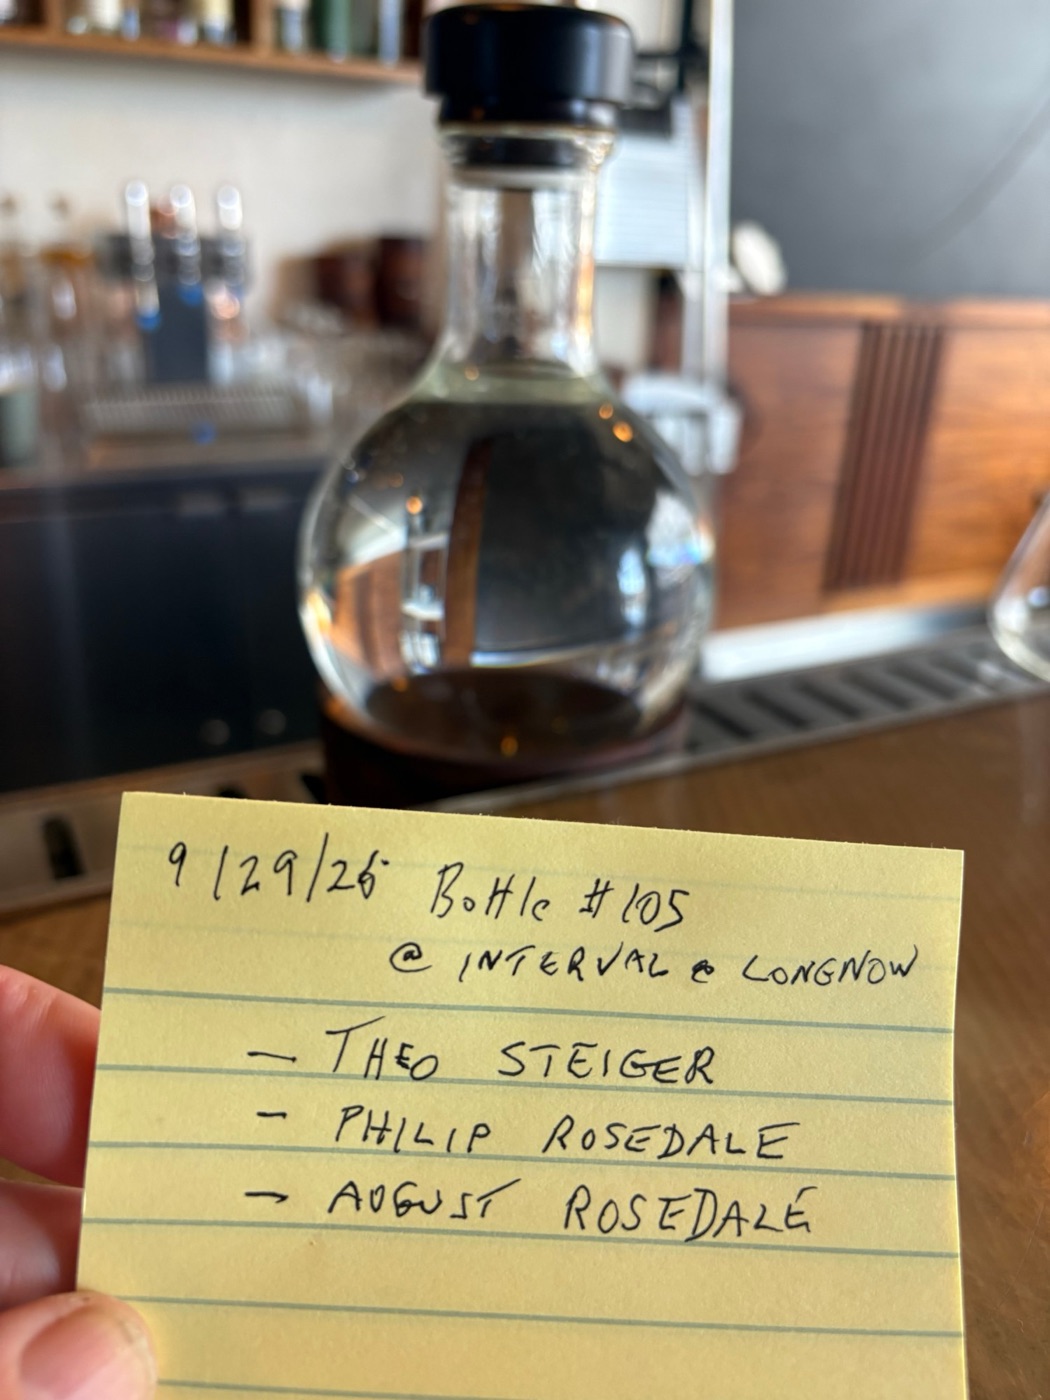 9/29/26 Bottle #105
@ INTERVAL @ LONGNOW
— THEO STEIGER
- PHILIP ROSEDALE
— AUGUST ROSEDALE